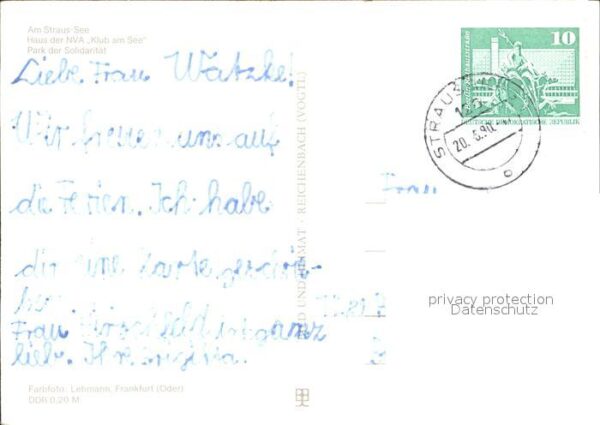 Am Straus-See
Haus der NVA „Klub am See"
Park der Solidarität
Liebe Frau Watzke!
Wir freuen uns auf
die Ferien. Ich habe
dir eine Karte geschrie-
ben.
Frau Hirschfeld ist ganz
lieb. Ihre Brigitta.
Farbfoto: Lehmann, Frankfurt (Oder)
DDR 0,20 M
BILD UND HEIMAT · REICHENBACH (VOGTL)
10
DEUTSCHE DEMOKRATISCHE REPUBLIK
STRAUSBERG
20. 6.90
Frau
privacy protection
Datenschutz